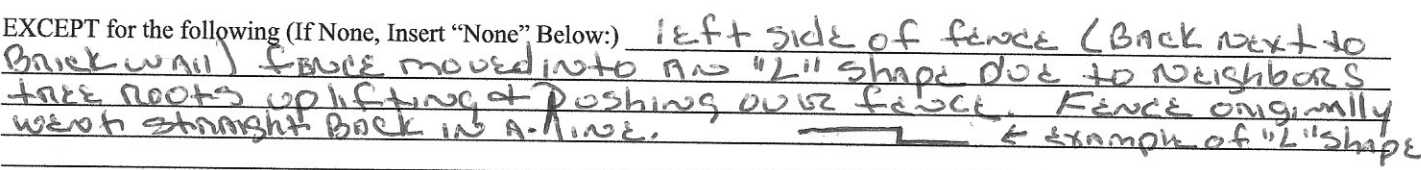 EXCEPT for the following (If None, Insert “None” Below:) left side of fence (Back next to
Brick wall) fence moved into an "L" shape due to Neighbors
tree roots uplifting + pushing over fence. Fence originally
went straight Back in A-line. ← example of "L" shape